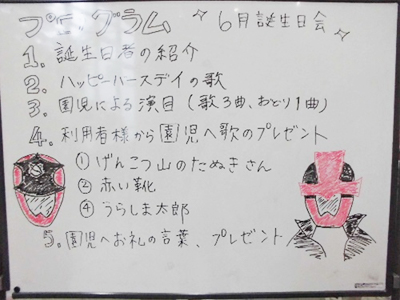 プログラム 6月誕生日会
1. 誕生日者の紹介
2. ハッピーバースデイの歌
3. 園児による演目(歌3曲、おどり1曲)
4. 利用者様から園児へ歌のプレゼント
① げんこつ山のたぬきさん
② 赤い靴
④ うらしま太郎
5. 園児へお礼の言葉、プレゼント